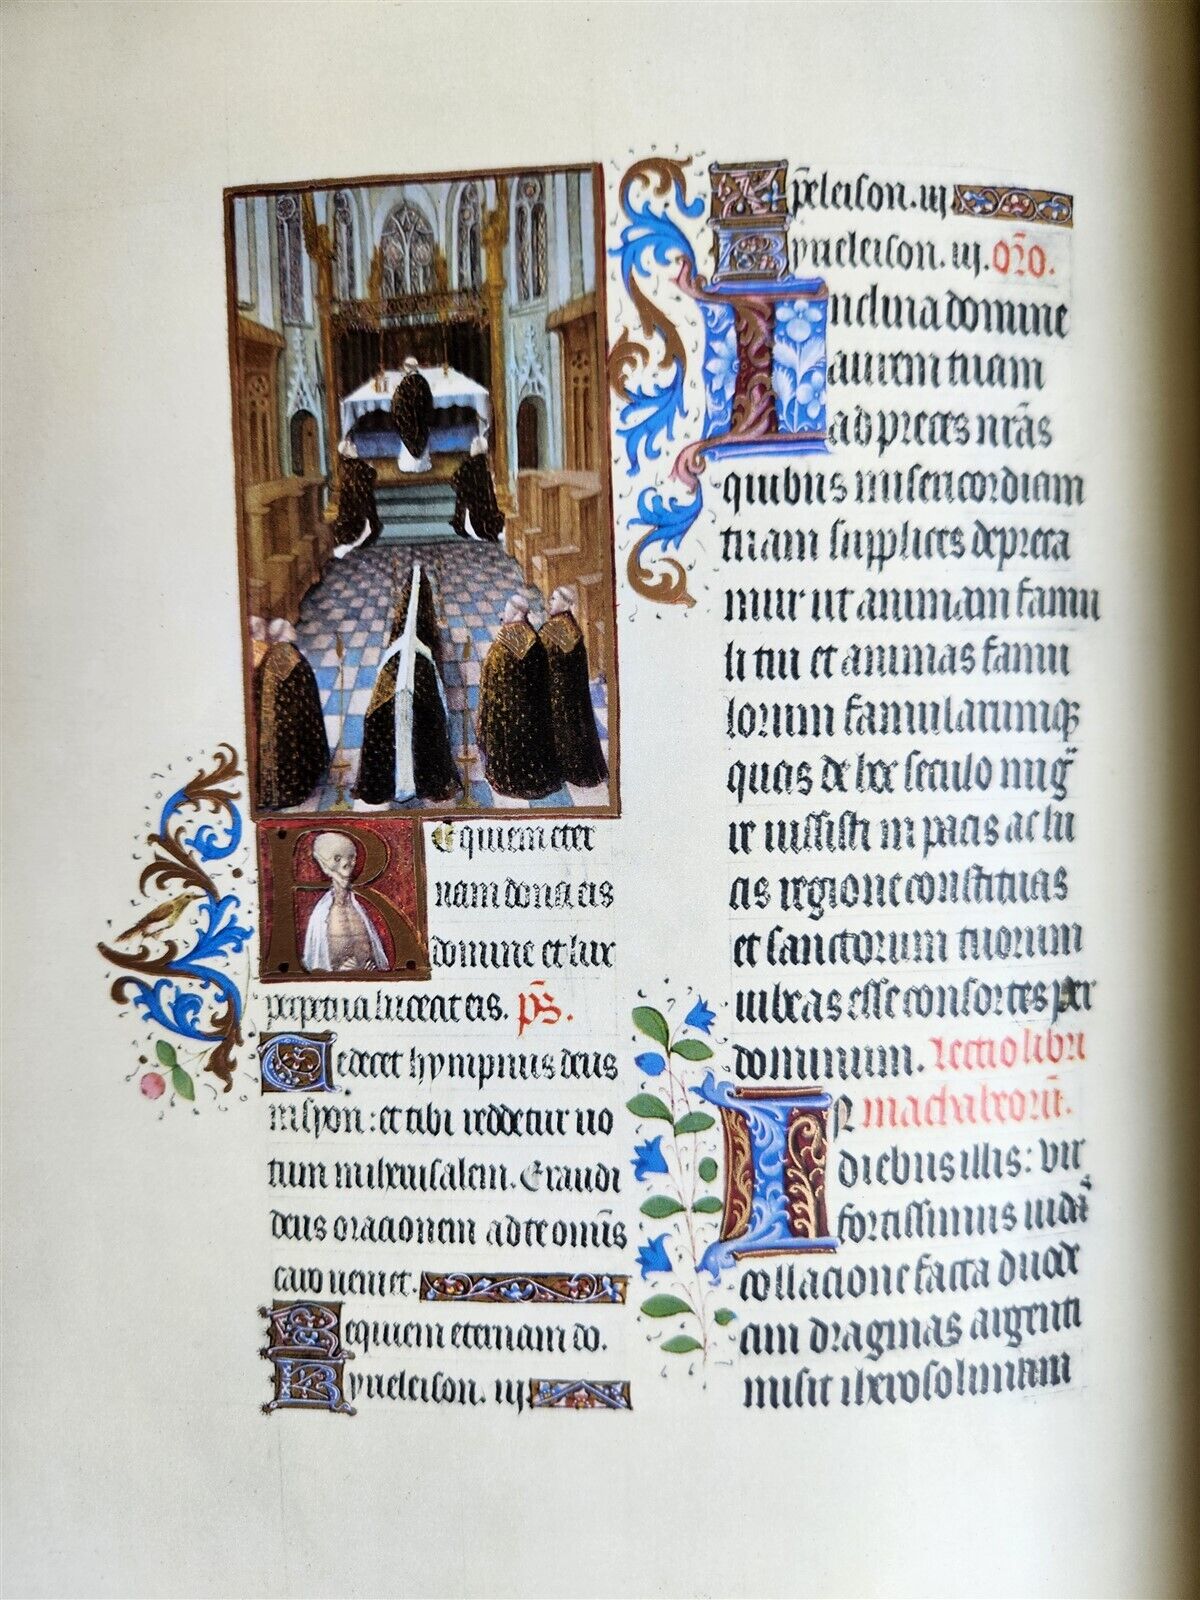 Requiem eter
nam dona eis
domine et lux
perpetua luceat eis. p̄s.
Te decet hympnus deus
in syon: et tibi reddetur uo
tum in iherusalem. Exaudi
deus orationem ad te om̄is
caro ueniet.
Requiem eternam do.
Kyrieleison. iij
Xp̄eleison. iij
Kyrieleison. iij. or̄o.
Inclina domine
aurem tuam
ad preces nr̄as
quibus misericordiam
tuam supplices depreca
mur ut animam famu
li tui et animas famu
lorum famularumq
quas de hoc seculo mig
re iussisti in pacis ac lu
cis regione constituas
et sanctorum tuorum
iubeas esse consortes per
dominum. Lectio libri
machabeorū.
In diebus illis: vir
fortissimus iudas
collatione facta duode
cim dragmas argenti
misit iherosolimam